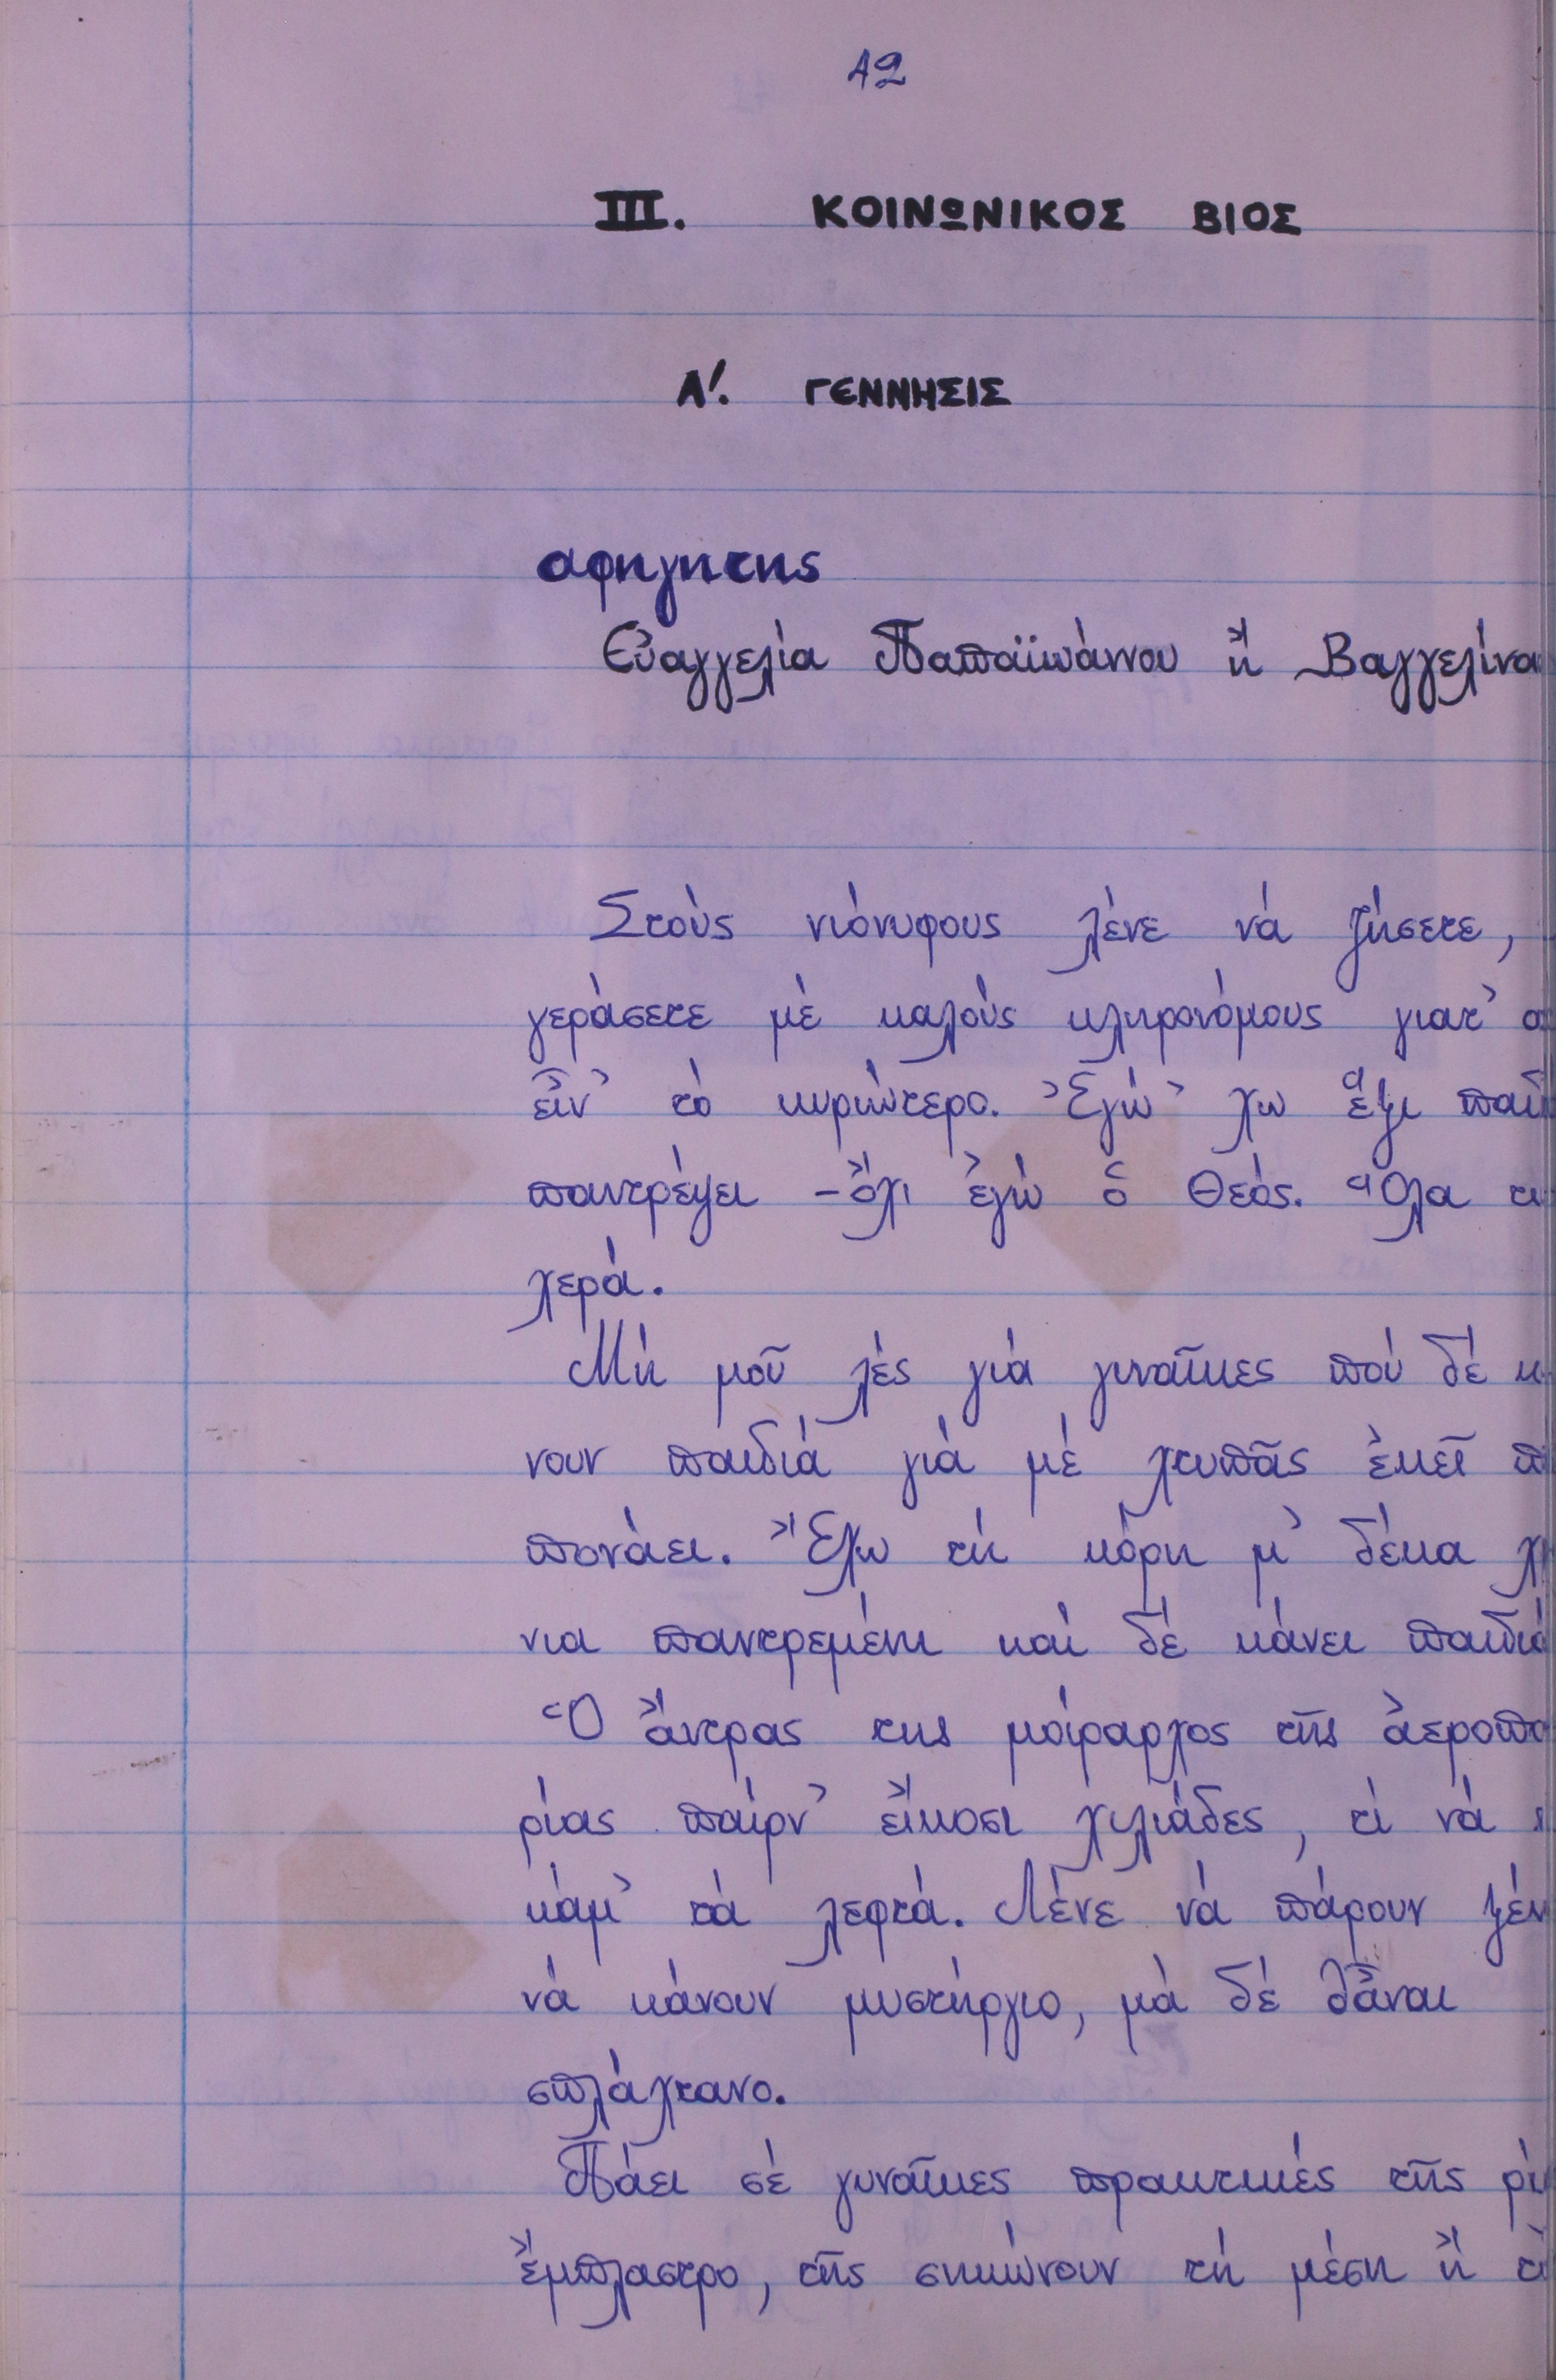 42
III. ΚΟΙΝΩΝΙΚΟΣ ΒΙΟΣ
Α'. ΓΕΝΝΗΣΙΣ
αφηγητης
Εὐαγγελία Παπαϊωάννου ἤ Βαγγελίνα
Στούς νιόνυφους λένε νά ζήσετε,
γεράσετε μέ καλούς κληρονόμους γιατ'
εἶν' τό κυριώτερο. Ἐγώ' χω ἕξι
παντρέψει - ὄχι ἐγώ ὁ Θεός. Ὅλα
χερά.
Μή μοῦ λές γιά γυναῖκες πού δέ
νουν παιδιά γιά μέ χτυπᾶς ἐκεῖ
πονάει. Ἔχω τή κόρη μ' δέκα
νια παντρεμένη καί δέ κάνει παιδιά
Ὁ ἄντρας της μοίραρχος τῆς ἀεροπο
ρίας παίρν' εἴκοσι χιλιάδες, τί νά
κάμ' τά λεφτά. Λένε νά πάρουν
νά κάνουν μυστήργιο, μά δέ θἆναι
σπλάχτανο.
Πάει σέ γυναῖκες πρακτικές τῆς
ἔμπλαστρο, τῆς σηκώνουν τή μέση ἤ